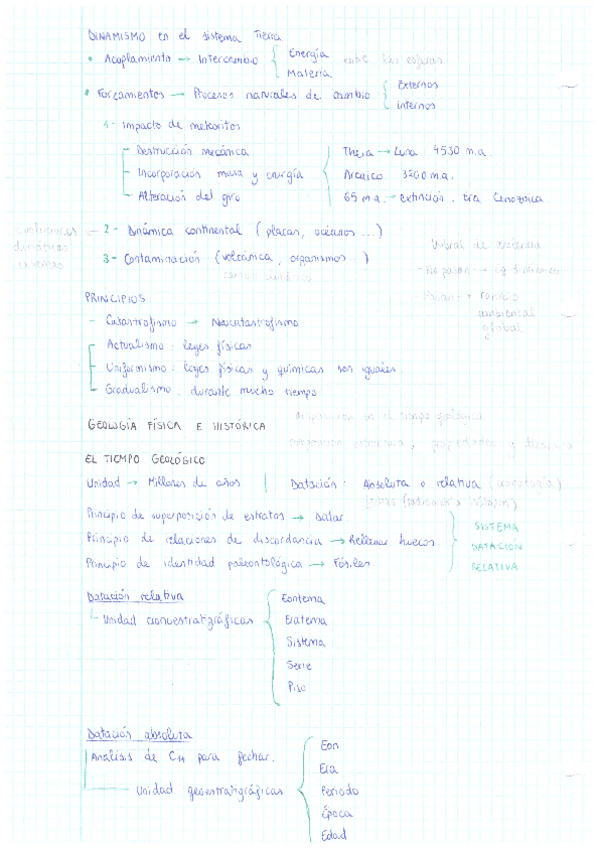 DINAMISMO en el sistema Tierra
• Acoplamiento → Intercambio { Energía entre las esferas
Materia
• Forzamientos → Procesos naturales de cambio { Externos
Internos
1- Impacto de meteoritos
- Destrucción mecánica
Theia → Luna 4530 m.a.
- Incorporación masa y energía
Arcaico 3200 m.a.
- Alteración del giro
65 m.a. → extinción. era Cenozoica
2- Dinámica continental (placas, océanos ...)
Umbral de
3- Contaminación (volcánica, organismos ...)
- No pasan →
- Pasan → cambio
ambiental
global
PRINCIPIOS
- Catastrofismo → Neocatastrofismo
- Actualismo: leyes físicas
- Uniformismo: leyes físicas y químicas son iguales.
- Gradualismo: durante mucho tiempo
GEOLOGÍA FÍSICA E HISTÓRICA
en el tiempo geológico
EL TIEMPO GEOLÓGICO
Unidad → Millones de años | Datación: Absoluta o relativa
Principio de superposición de estratos → datar.
Principio de relaciones de discordancia → Rellenar huecos
Principio de identidad paleontológica → Fósiles.
SISTEMA
DATACIÓN
RELATIVA
Datación relativa
Unidad cronoestratigráficas { Eontema
Eratema
Sistema
Serie
Piso
Datación absoluta
Análisis de C14 para fechar.
Unidad geoestratigráficas { Eon
Era
Periodo
Época
Edad